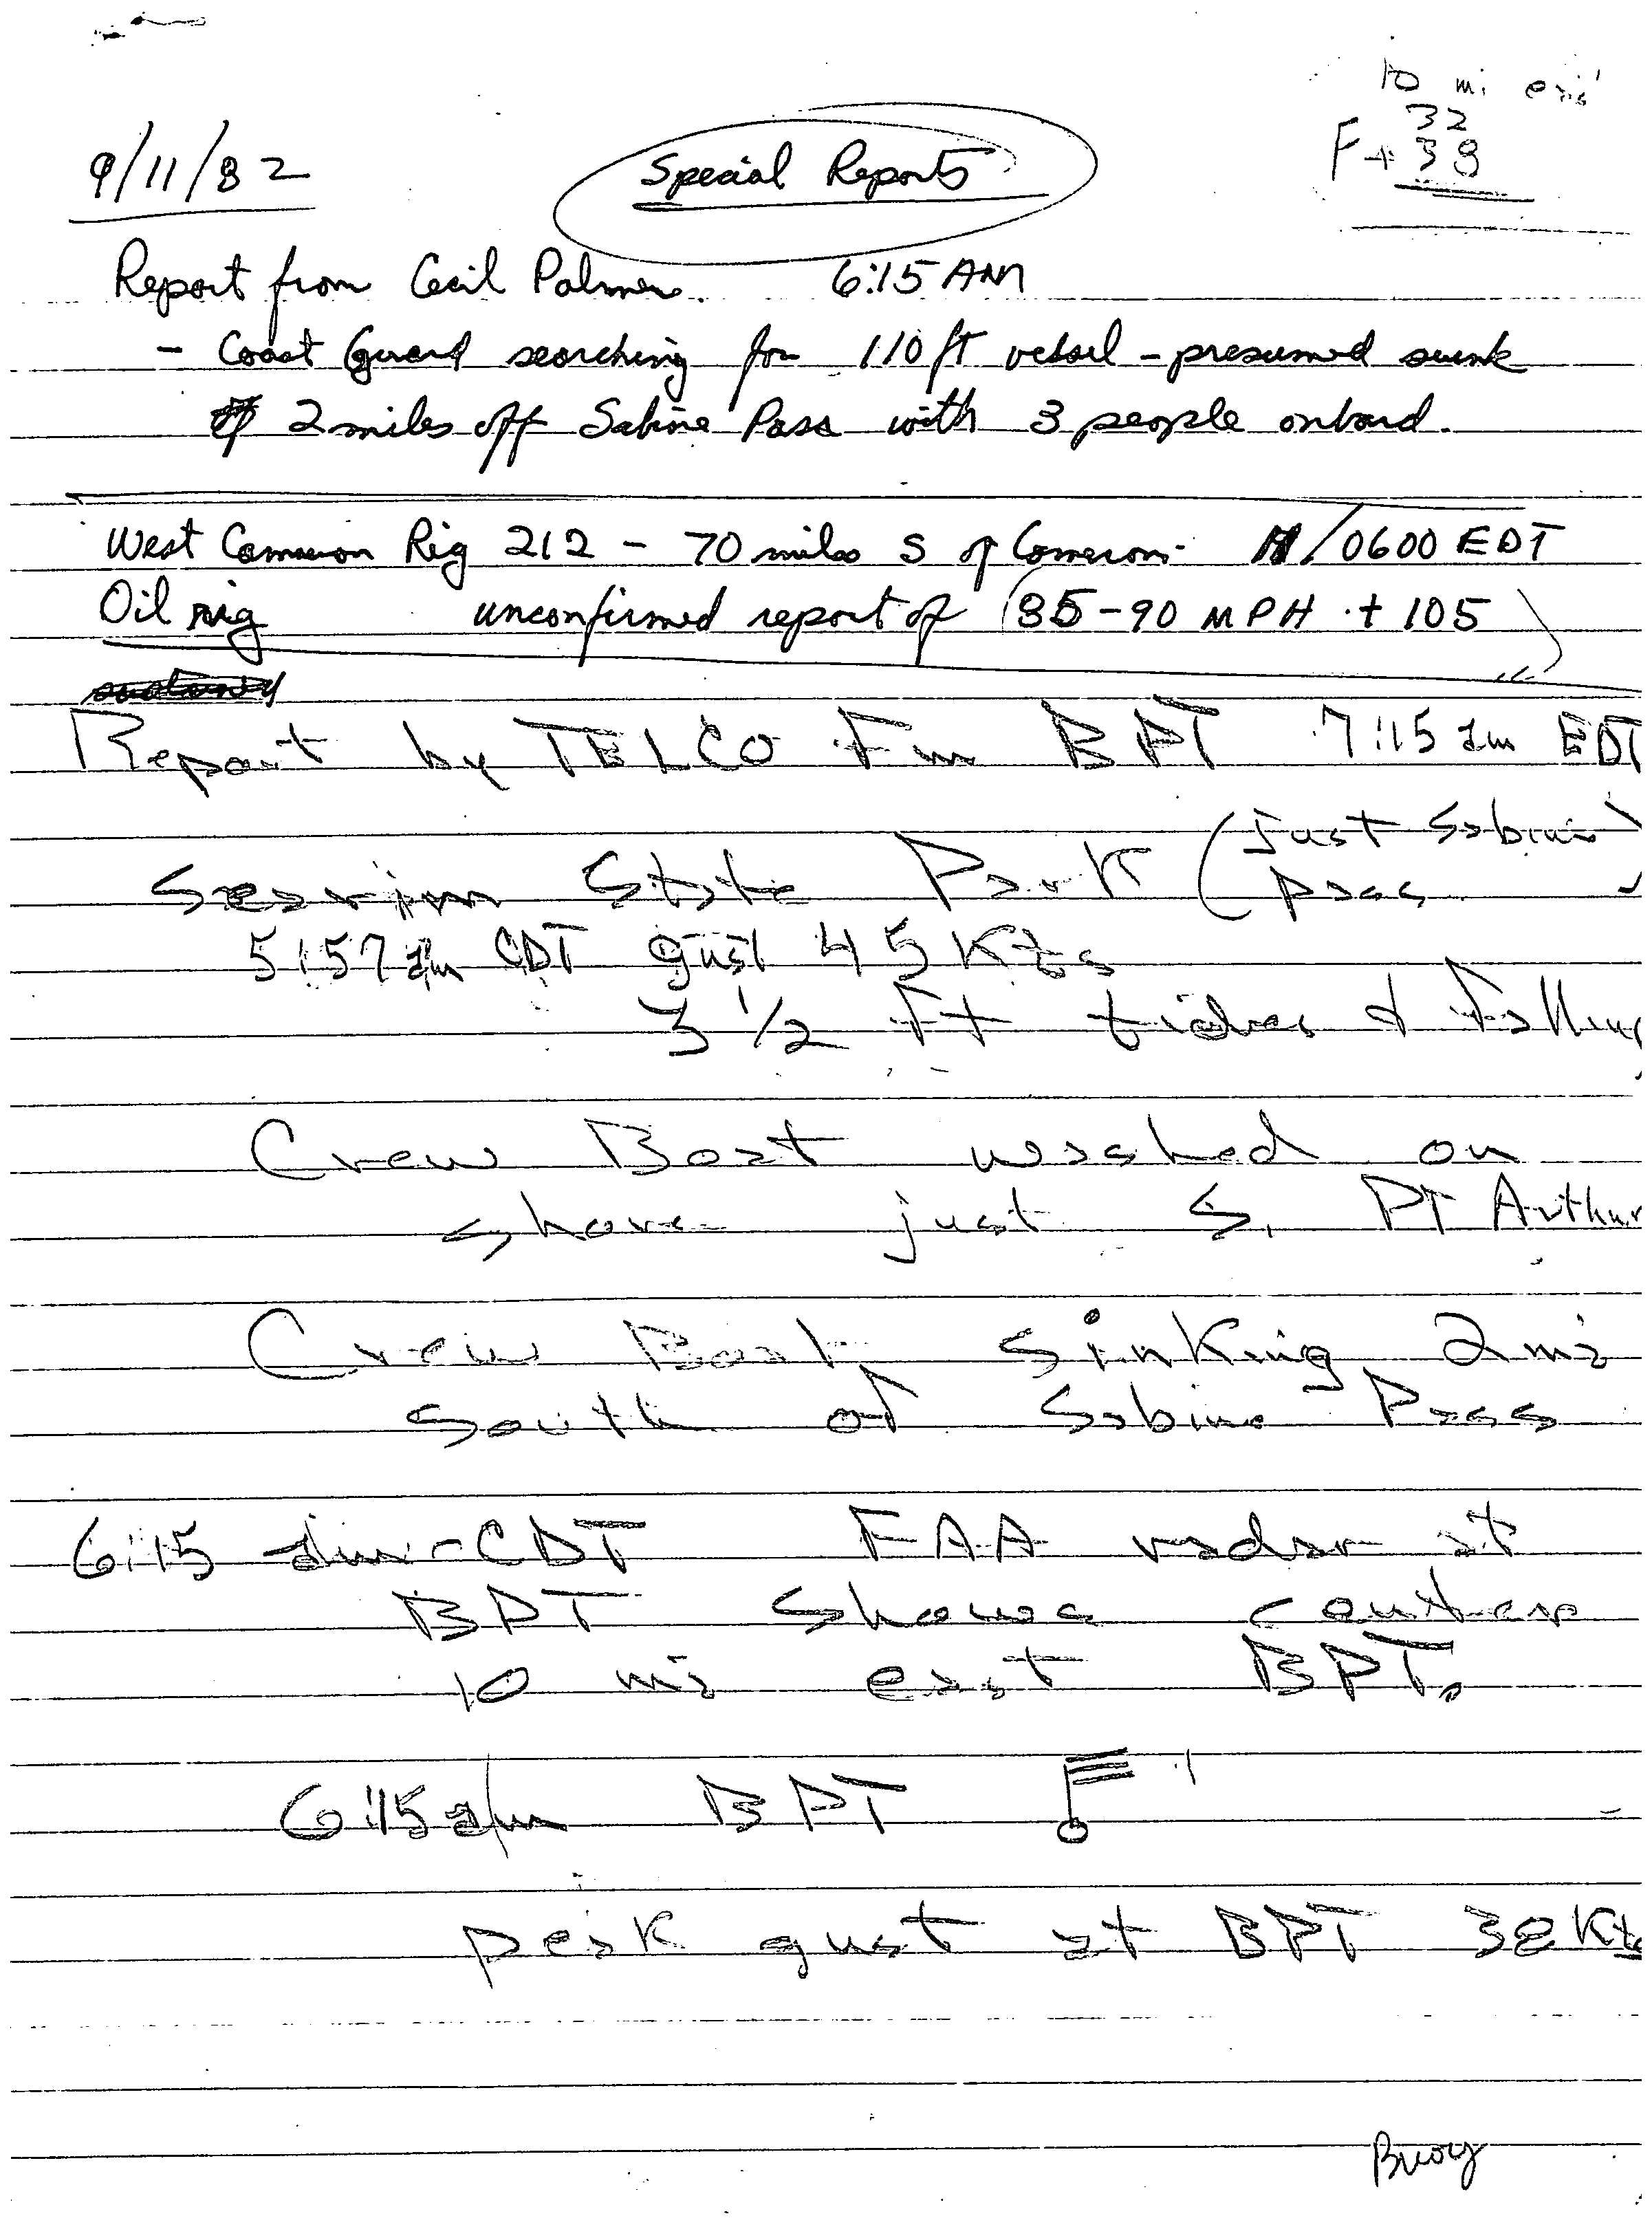 10 mi east
32
F + 38
9/11/82 Special Reports
Report from Cecil Palmer 6:15 AM
- Coast Guard searching for 110 ft vessel - presumed sunk
2 miles off Sabine Pass with 3 people onboard.
West Cameron Rig 212 - 70 miles S of Cameron. /0600 EDT
Oil rig unconfirmed report of (85-90 MPH + 105)
Report by TELCO Fm BPT 7:15 am EDT
State Park (Just Sabine
Pass
5:57 am CDT gust 45 Kts
3 1/2 Ft tides + Falling
Crew Boat washed on
shore just S. PT Arthur
Crew Boat sinking 2 mi
south of Sabine Pass
6:15 am-CDT FAA radar at
BPT shows center
10 mi east BPT.
6:15 a/m BPT
peak gust at BPT 38 Kts
Buoy